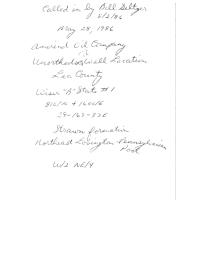 Called in by Bill Seltzer
5/2/86
May 28, 1986
Amerind Oil Company
Unorthodox Well Location
Lea County
Wiser "B" State #1
810/N + 1660/E
29-16S-37E
Strawn formation
Northeast Lovington-Pennsylvanian
Pool
W/2 NE/4